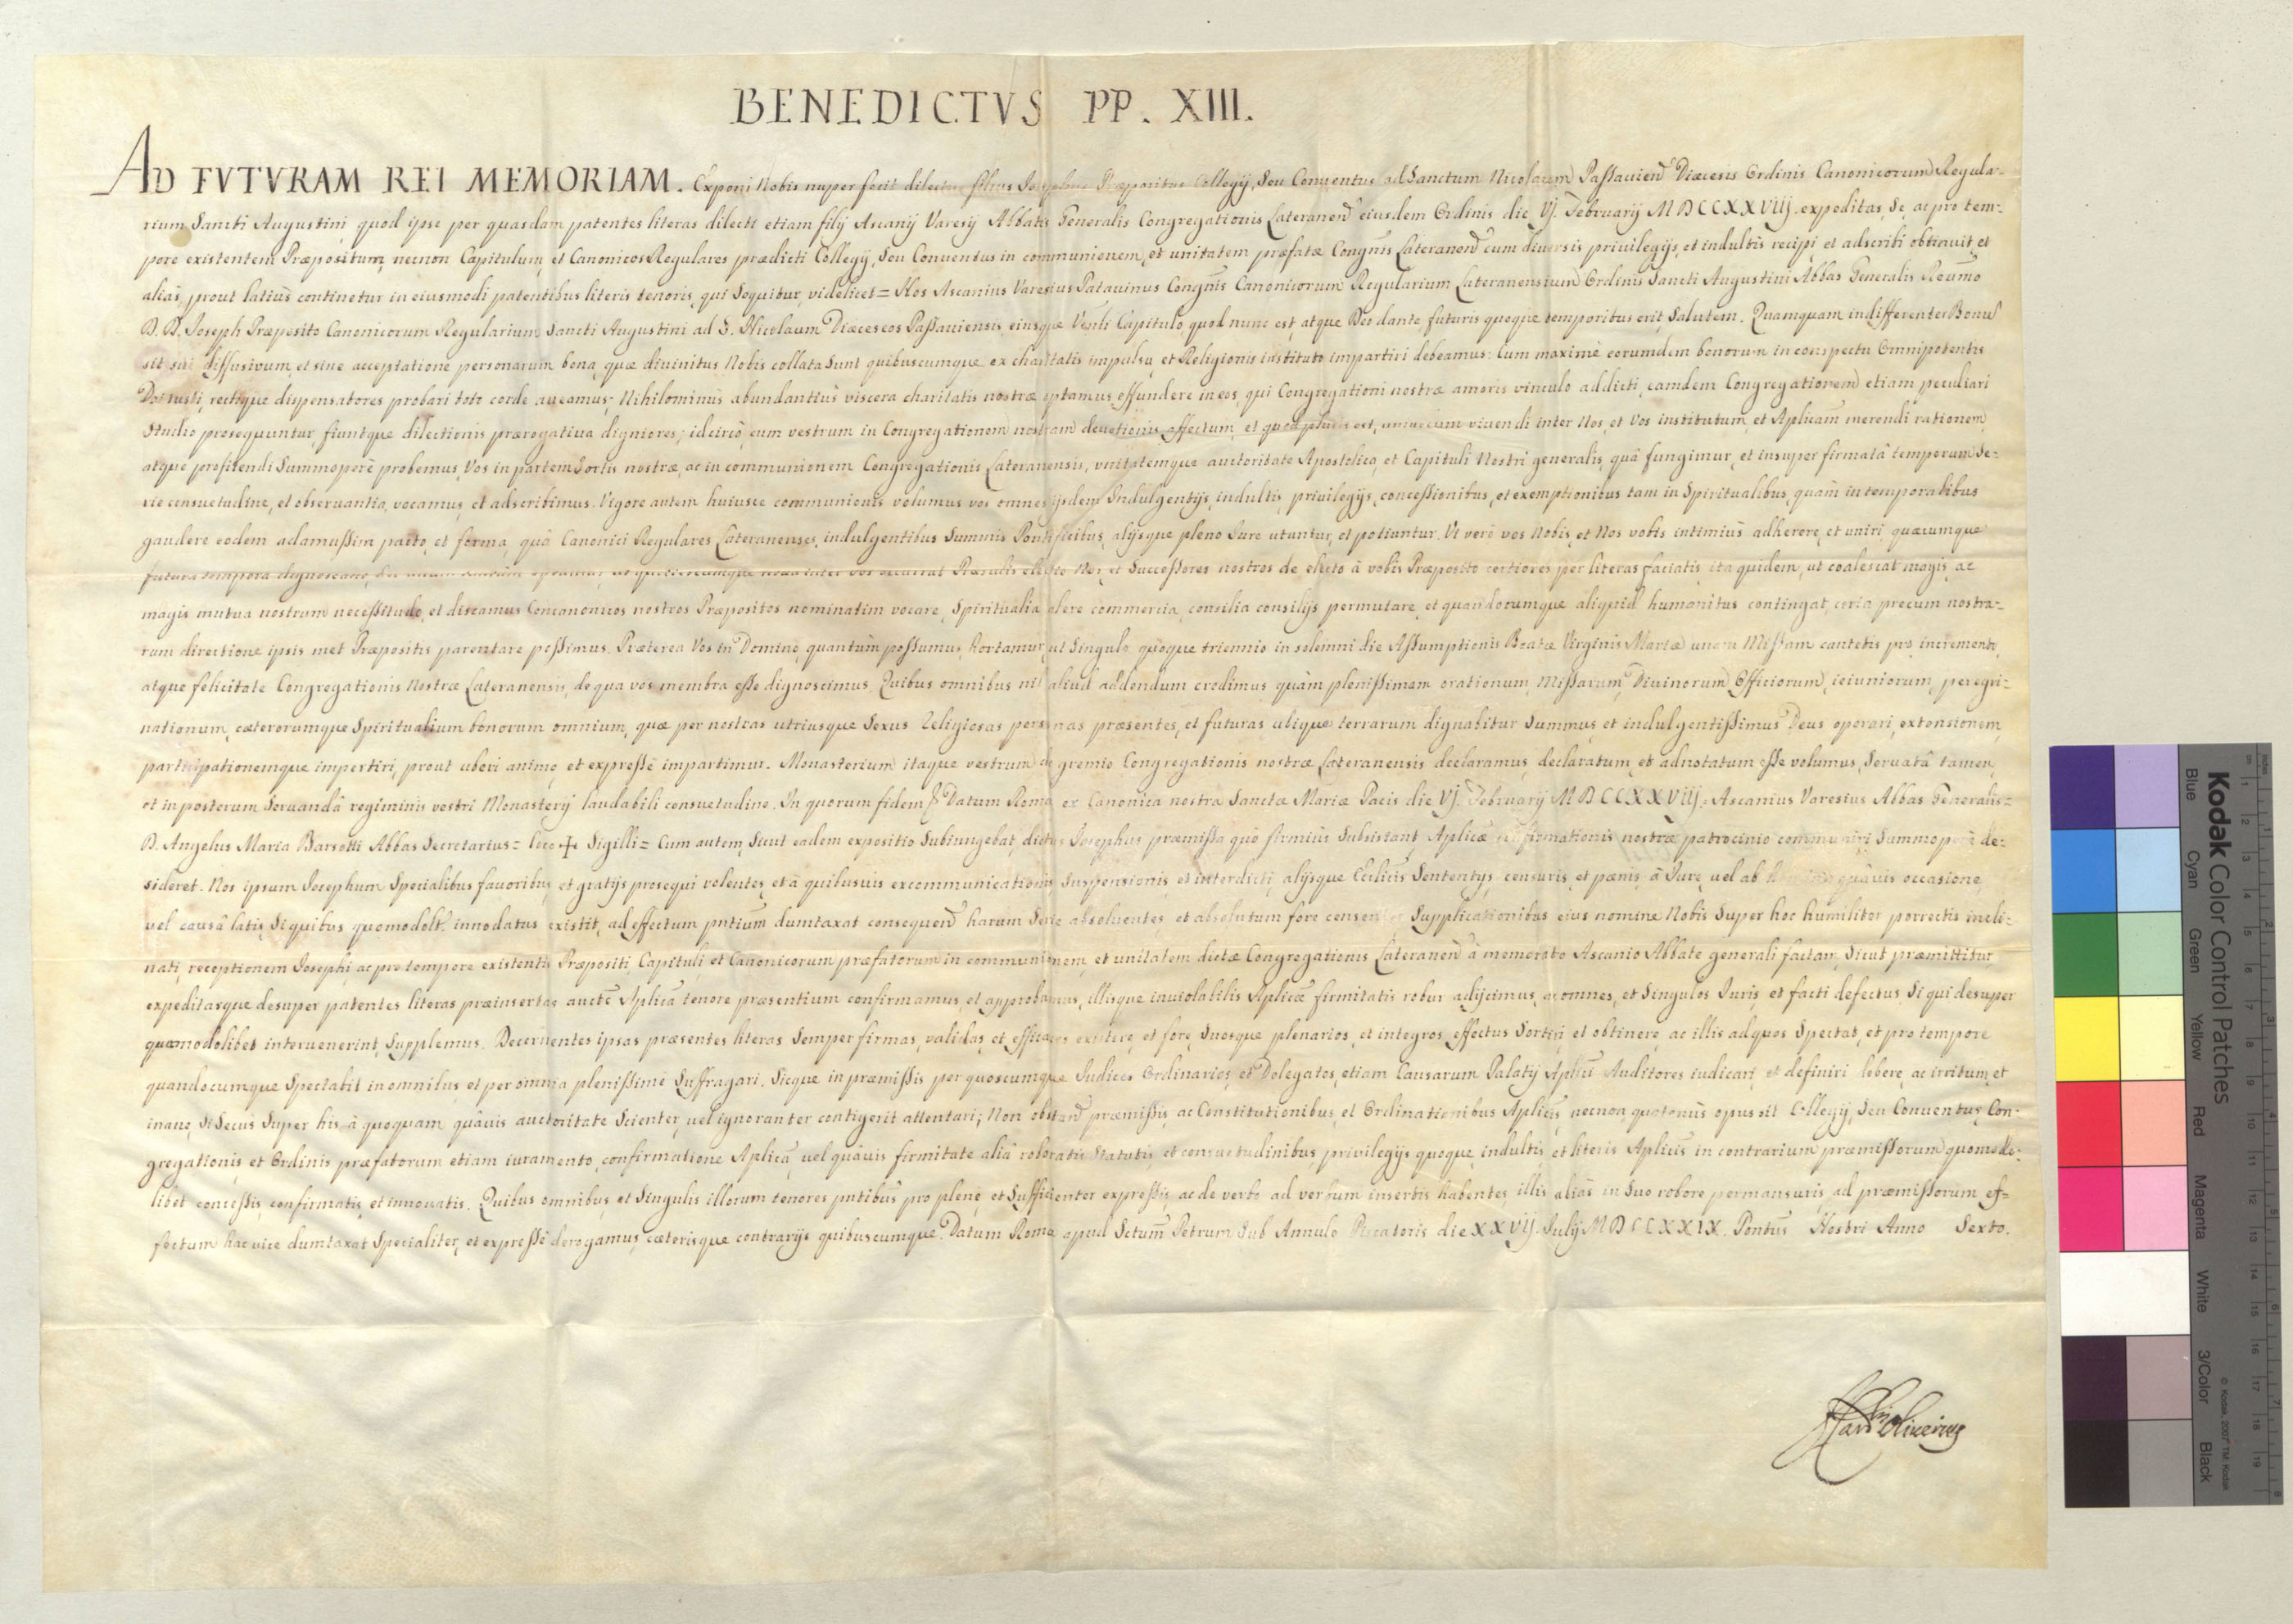 BENEDICTVS PP. XIII.
AD FVTVRAM REI MEMORIAM. Exponi Nobis nuper fecit dilectus filius Josephus Præpositus Collegij, seu Conuentus ad Sanctum Nicolaum Passauien Diæcesis Ordinis Canonicorum Regula-
rium Sancti Augustini, quod ipse per quasdam patentes literas dilecti etiam filij Ascanij Varesij Abbatis Generalis Congregationis Lateranen eiusdem Ordinis die VJ. Februarij MDCCXXVIIJ. expeditas, se, ac pro tem-
pore existentem Præpositum, necnon Capitulum, et Canonicos Regulares prædicti Collegij, seu Conuentus in communionem, et unitatem præfatæ Congnis Lateranen cum diuersis priuilegijs, et indultis recipi, et adscribi obtinuit, et
aliàs, prout latiùs continetur in eiusmodi patentibus literis tenoris, qui sequitur, videlicet = Nos Ascanius Varesius Patauinus Congnis Canonicorum Regularium Lateranensium Ordinis Sancti Augustini Abbas Generalis Reumo
D. D. Joseph Præposito Canonicorum Regularium Sancti Augustini ad S. Nicolaum Diæceseos Passauiensis, eiusque Venli Capitulo quod nunc est, atque Deo dante, futuris quoque temporibus erit, Salutem. Quamquam indifferenter Bonu
sit sui diffusivum, et sine acceptatione personarum bona, quæ diuinitus Nobis collata sunt quibuscumque ex charitatis impulsu, et Religionis instituto impartiri debeamus: Cum maximè eorumdem bonorum in conspectu Omnipotentis
Dei iusti, rectique dispensatores probari toto corde aueamus; Nihilominùs abundantiùs viscera charitatis nostræ optamus effundere in eos, qui Congregationi nostræ amoris vinculo addicti, eamdem Congregationem etiam peculiari
studio prosequuntur, fiuntque dilectionis prærogatiua digniores; idcircò, cum vestrum in Congregationem nostram deuotionis affectum, et quod pluris est, viuendi inter Nos, et Vos institutum, et Aplicam merendi rationem,
atque profitendi summoperè probemus, Vos in partem sortis nostræ, ac in communionem Congregationis Lateranensis, vnitatemque auctoritate Apostolica, et Capituli Nostri generalis, quâ fungimur, et insuper firmatâ temporum se-
rie consuetudine, et obseruantia, vocamus, et adscribimus. Vigore autem huiusce communionis volumus vos omnes ijsdem Indulgentijs, indultis, priuilegijs, concessionibus, et exemptionibus tam in spiritualibus, quàm in temporalibus
gaudere eodem adamussim pacto, et forma, quâ Canonici Regulares Lateranenses, indulgentibus Summis Pontificibus, alijsque pleno Iure utuntur, et potiuntur. Vt verò vos Nobis, et Nos vobis intimiùs adherere, et uniri quæcumque
futura tempora dignoscant, Nos, et Successores nostros de electo à vobis Præposito certiores per literas faciatis, ita quidem, ut coalescat magis, ac
magis mutua nostrum necessitudo, et discamus Concanonicos nostros Præpositos nominatim vocare, Spiritualia commercia, consilia consilijs permutare, et quandocumque aliquid humanitus contingat, certa precum nostra-
rum directione ipsis met Præpositis parentare possimus. Præterea Vos in Domino, quantùm possumus, hortamur, ut singulo quoque triennio in solemni die Assumptionis Beatæ Virginis Mariæ unam Missam cantetis pro incremento,
atque felicitate Congregationis Nostræ Lateranensis, de qua vos membra esse dignoscimus. Quibus omnibus nil aliud addendum credimus, quàm plenissimam orationum, Missarum, Diuinorum Officiorum, ieiuniorum, peregri-
nationum, cæterorumque Spiritualium bonorum omnium, quæ per nostras utriusque Sexus Religiosas personas præsentes, et futuras ubique terrarum dignabitur Summus, et indulgentissimus Deus operari, extensionem,
participationemque impertiri, prout uberi animo, et expressè impartimur. Monasterium itaque vestrum de gremio Congregationis nostræ Lateranensis declaramus, declaratum, et adnotatum esse volumus, Seruatâ tamen,
et in posterum seruandâ regiminis vestri Monasterij laudabili consuetudine. In quorum fidem & Datum Romæ ex Canonica nostra Sanctæ Mariæ Pacis die VJ. Februarij MDCCXXVIIJ. = Ascanius Varesius Abbas Generalis =
D. Angelus Maria Barsotti Abbas Secretarius = loco + Sigilli = Cum autem, sicut eadem expositio subiungebat, dictus Josephus præmissa quò firmiùs subsistant Aplicæ confirmationis nostræ patrocinio communiri summoperè de-
sideret. Nos ipsum Josephum Specialibus fauoribus, et gratijs prosequi volentes, et à quibusuis excommunicationis, suspensionis, et interdicti, alijsque Ecclicis Sententijs, censuris, et pænis à Iure, uel ab homine quâuis occasione,
uel causâ latis, si quibus quomodolt innodatus existit, ad effectum pntium dumtaxat consequen harum serie absoluentes, et absolutum fore censentes, Supplicationibus eius nomine Nobis super hoc humiliter porrectis incli-
nati, receptionem Josephi, ac pro tempore existentis Præpositi, Capituli, et Canonicorum præfatorum in communionem, et unitatem dictæ Congregationis Lateranen à memorato Ascanio Abbate generali factam, sicut præmittitur,
expeditasque desuper patentes literas præinsertas auctte Aplica tenore præsentium confirmamus, et approbamus, illisque inuiolabilis Aplicæ firmitatis robur adijcimus, ac omnes, et singulos Iuris, et facti defectus, si qui desuper
quomodolibet interuenerint, supplemus. Decernentes ipsas præsentes literas semper firmas, validas, et efficaces existere, et fore, suosque plenarios, et integros effectus sortiri, et obtinere, ac illis ad quos spectat, et pro tempore
quandocumque spectabit in omnibus, et per omnia plenissimè suffragari. Sicque in præmissis per quoscumque Iudices Ordinarios, et Delegatos, etiam Causarum Palatij Aplici Auditores iudicari, et definiri debere, ac irritum, et
inane, si secus super his à quoquam quâuis auctoritate scienter, uel ignoranter contigerit attentari; Non obstan præmissis, ac Constitutionibus, et Ordinationibus Aplicis, necnon, quatenùs opus sit Collegij, seu Conuentus, Con-
gregationis, et Ordinis præfatorum etiam iuramento, confirmatione Aplica, uel quâuis firmitate aliâ roboratis statutis, et consuetudinibus, priuilegijs quoque, indultis, et literis Aplicis in contrarium præmissorum quomodo-
libet concessis, confirmatis, et innouatis. Quibus omnibus, et singulis illorum tenores pntibus pro plenè, et sufficienter expressis, ac de verbo ad verbum insertis habentes, illis aliàs in suo robore permansuris, ad præmissorum ef-
fectum hac vice dumtaxat specialiter, et expressè derogamus, cæterisque contrarijs quibuscumque. Datum Romæ apud Sctum Petrum sub Annulo Piscatoris die XXVIJ. Julij MDCCXXIX. Pontus Nostri Anno Sexto.
Oliverius
Kodak Color Control Patches
Blue Cyan Green Yellow Red Magenta White 3/Color Black
© Kodak, 2007 TM: Kodak